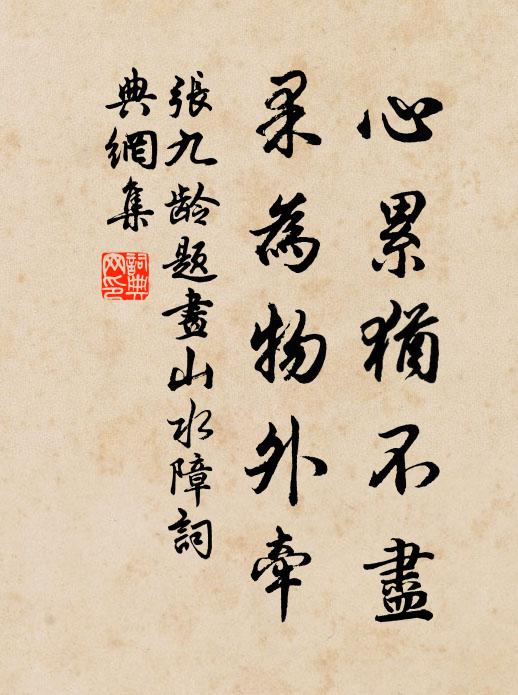 心累猶不盡
果為物外牽
張九龄題畫山水障詞
典網集
詞典
网印